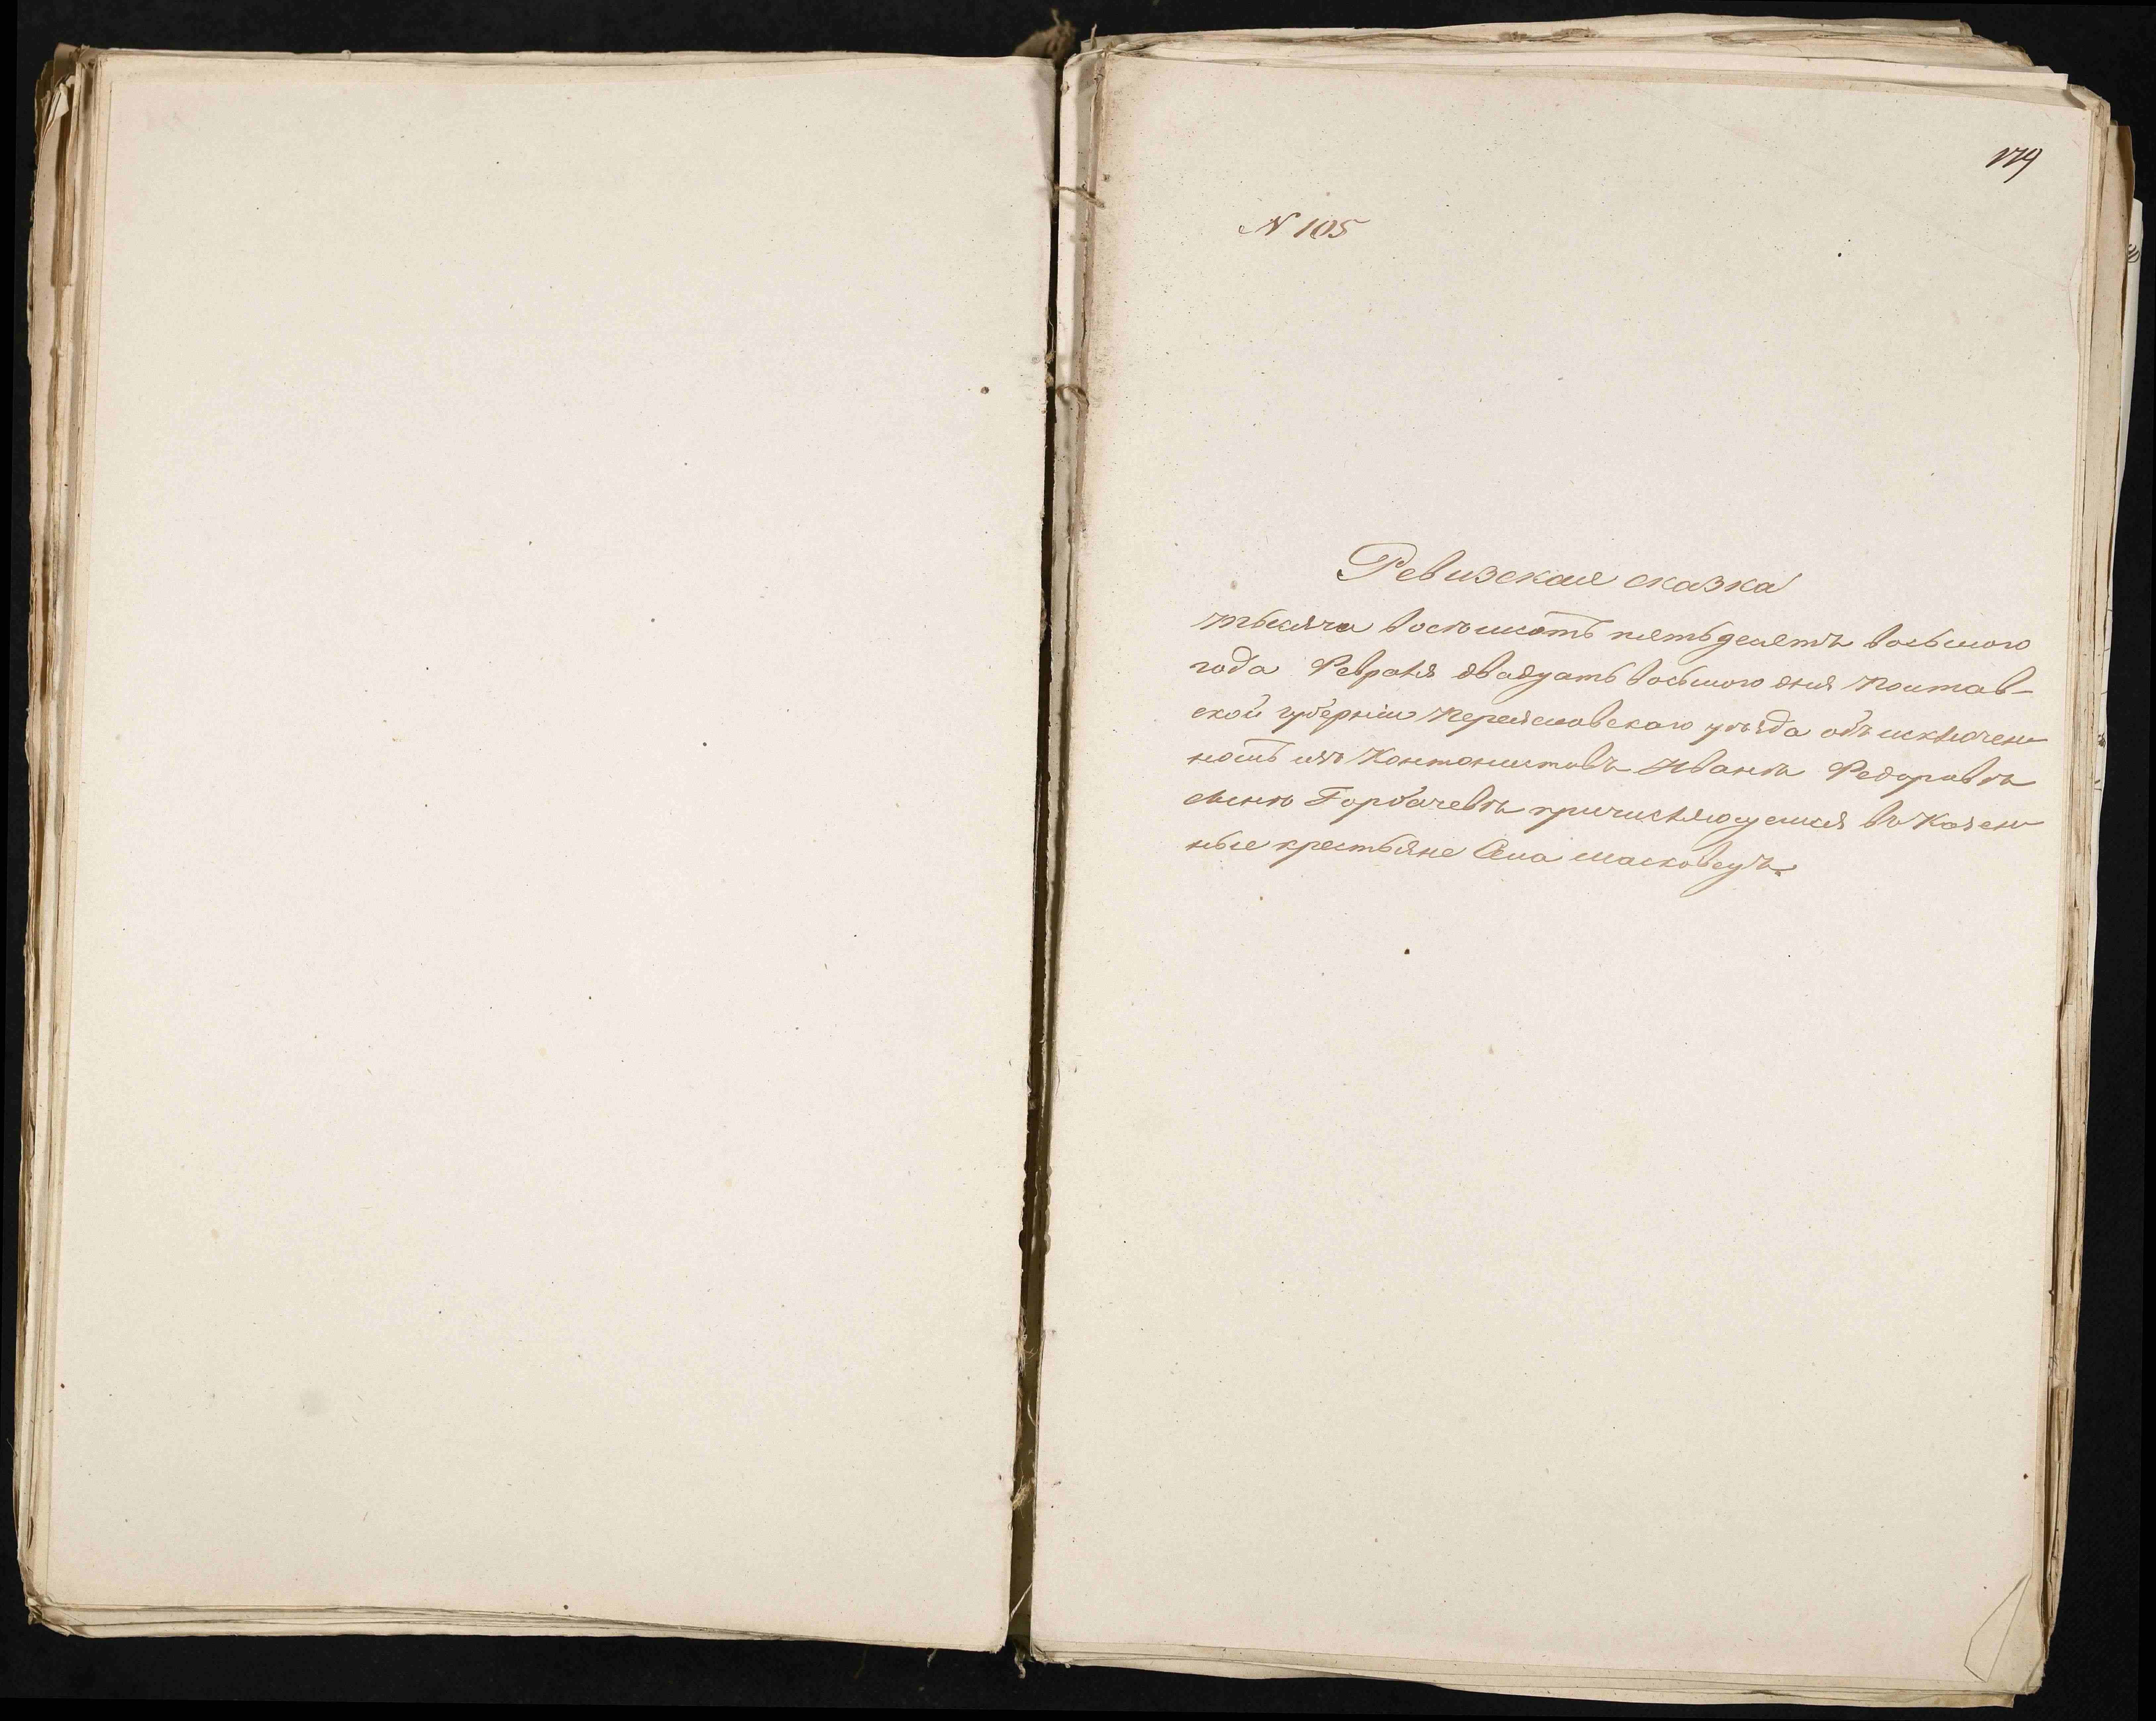 179
N 105
Ревизская сказка
тысяча восемьсотъ пятьдесятъ восьмого
года Февраля двадцать восьмого дня Полтав-
ской губерніи Переясловскаго уѣзда объ исключен
номъ изъ Кантонистовъ Иванѣ Федоровѣ
сынѣ Горбачевѣ причисляющемся въ Казен
ные крестьяне Села Масковецъ.